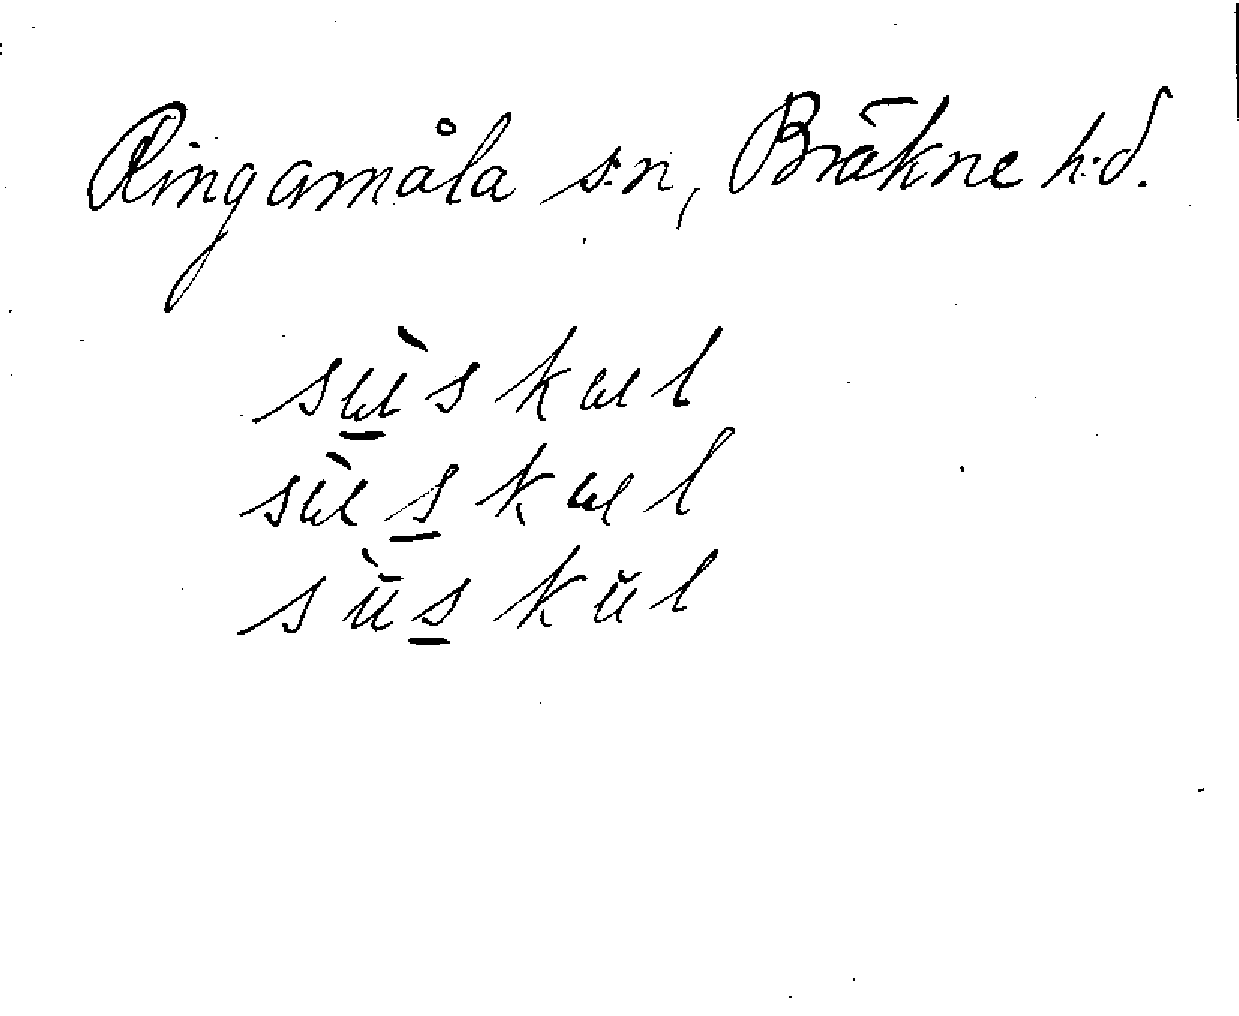 Ringamåla s:n, Bräkne h:d.
sɯ̲̀skɯl
sɯ̀s̲kɯl
sǜs̲kŭl